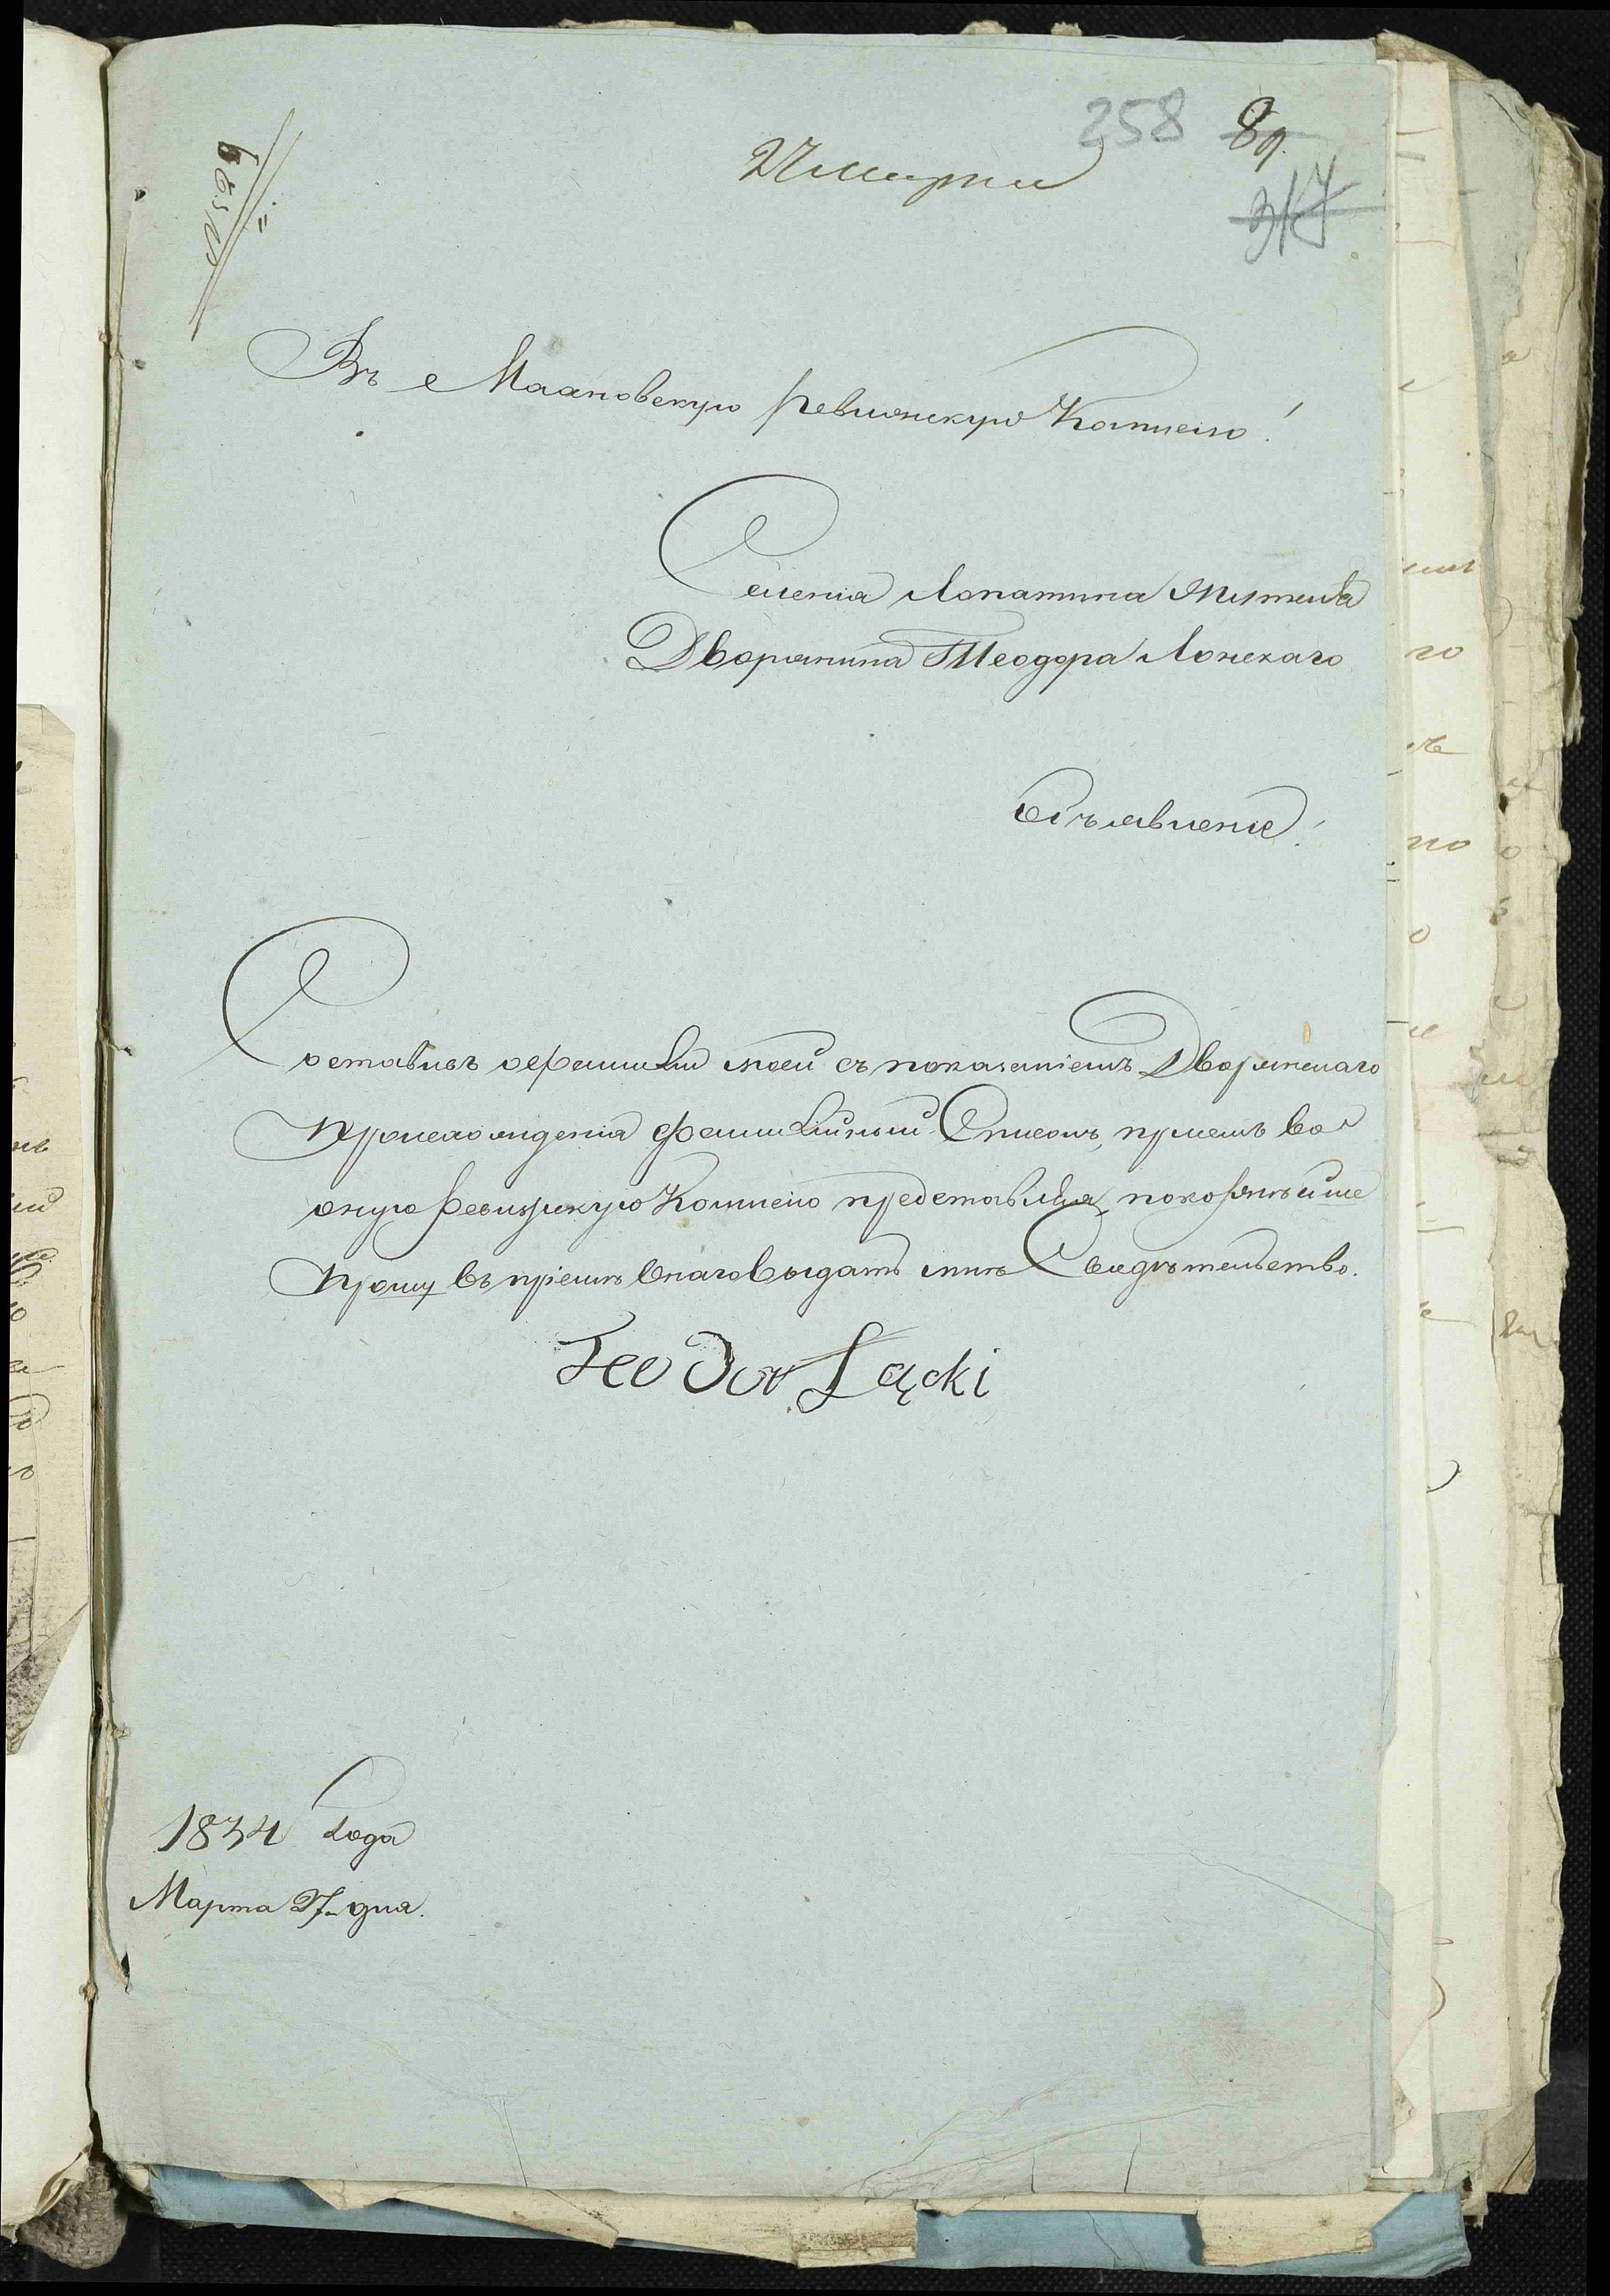 258 89.
347
№ 529
Въ Махновскую ревизскую Комисию!
Селенія Лопатина Жителя
Дворянина Теодора Лонскаго
Объявление!
Составивъ о фамилии моей съ показаніемъ Дворянскаго
Происхожденія фамилийный Списокъ, при семъ во
оную ревизскую Комисию представляя, покорнѣйше
прошу въ пріемѣ онаго выдать мнѣ Свидѣтельство.
Teodor Łącki
1834 Года
Марта 27 дня.